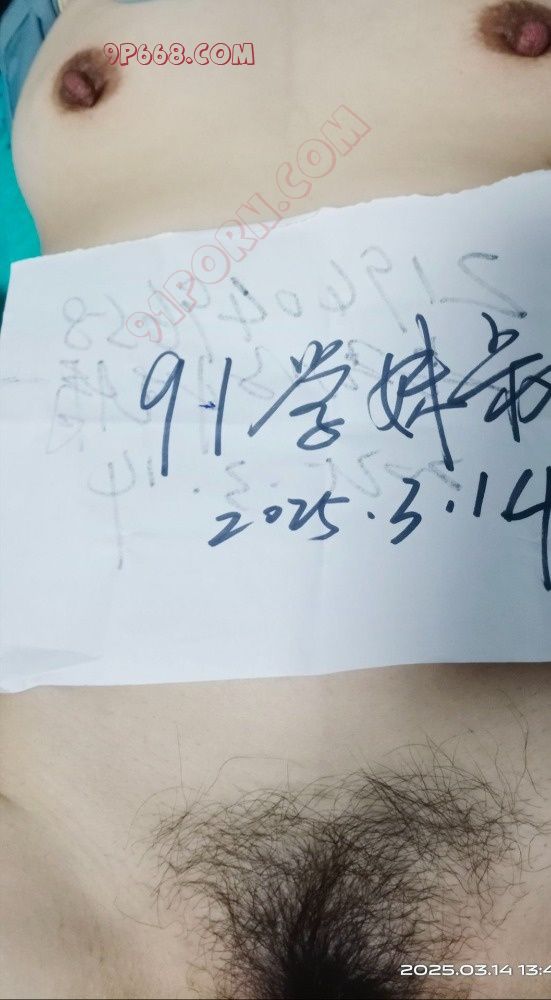 9P668.COM
91PORN.COM
91学妹
2025.3.14
2025.03.14 13:4